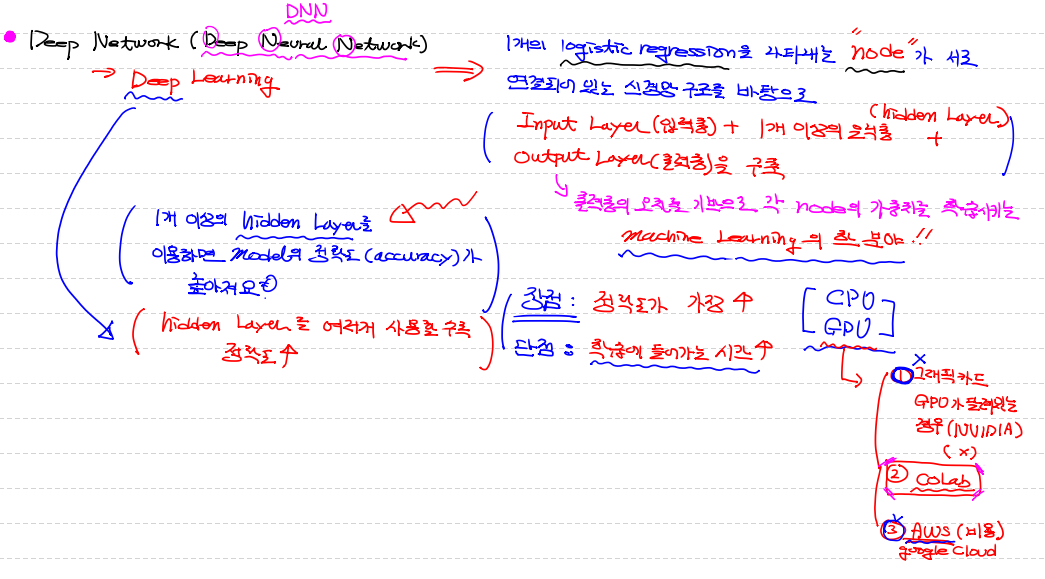 DNN
Deep Network (Deep Neural Network)
→ Deep Learning
⇒ 1개의 logistic regression을 나타내는 "node"가 서로
연결되어 있는 신경망 구조를 바탕으로
(hidden Layer)
Input Layer(입력층) + 1개 이상의 은닉층 +
Output Layer(출력층)을 구축
↳ 출력층의 오차를 기반으로 각 node의 가중치를 학습시키는
machine Learning의 한 분야!!
1개 이상의 hidden Layer를
이용하면 model의 정확도(accuracy)가
높아져요?
hidden Layer를 여러개 사용할수록
정확도 ↑
장점 : 정확도가 가장 ↑
단점 : 학습에 들어가는 시간 ↑
CPU
GPU
① 그래픽카드
GPU가 달려있는
경우 (NVIDIA)
(x)
② Colab
③ AWS (비용)
google Cloud